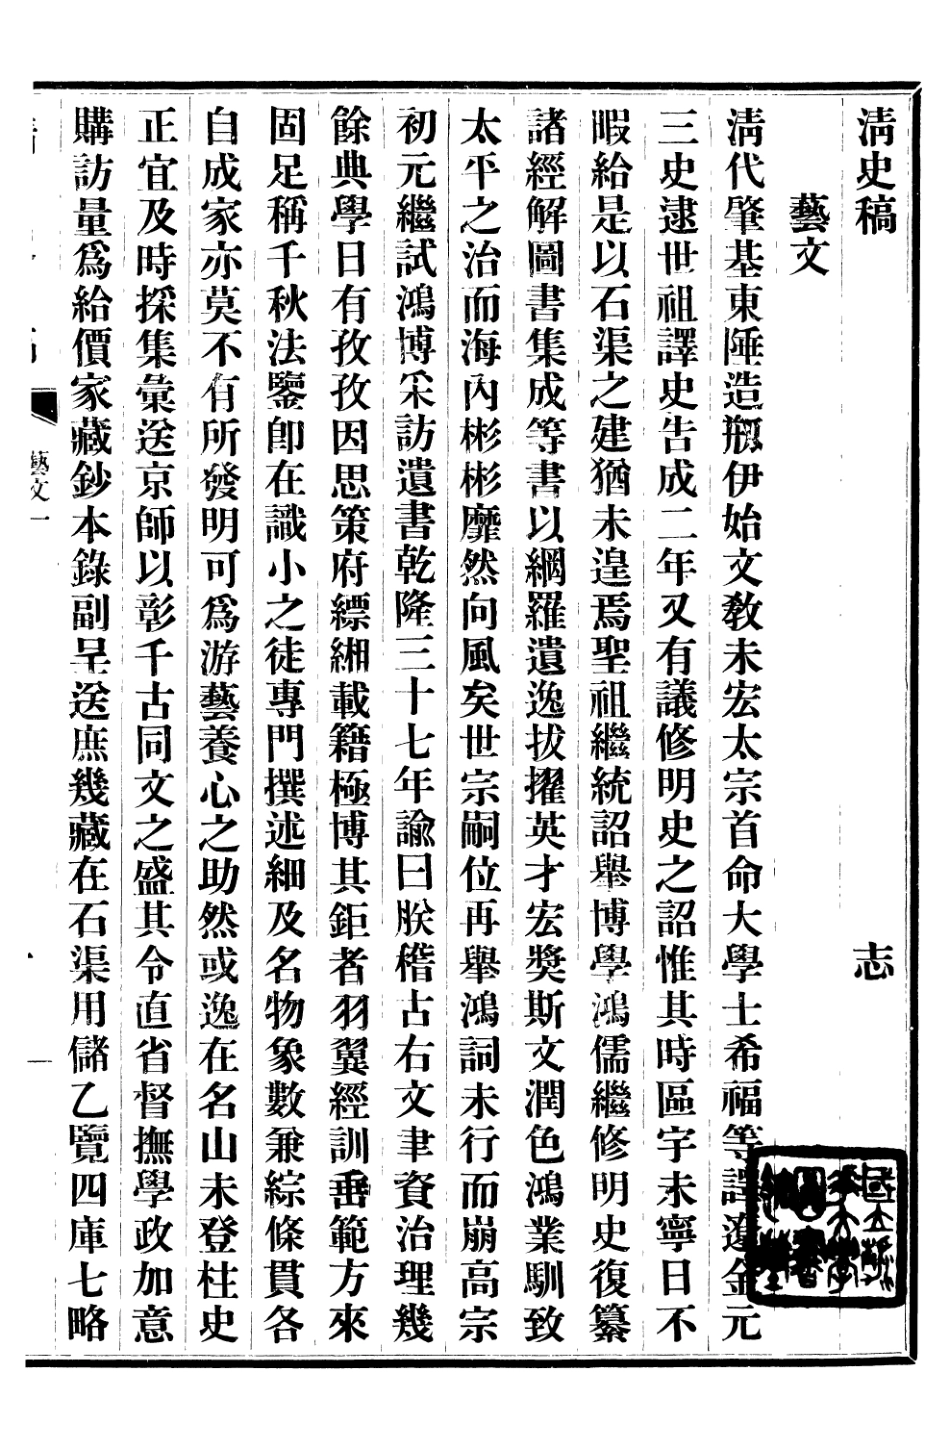 清史稿　志
藝文
清代肇基東陲造邦伊始文教未宏太宗首命大學士希福等譯遼金元
三史逮世祖譯史告成二年又有議修明史之詔惟其時區宇未寧日不
暇給是以石渠之建猶未遑焉聖祖繼統詔舉博學鴻儒繼修明史復纂
諸經解圖書集成等書以網羅遺逸拔擢英才宏獎斯文潤色鴻業馴致
太平之治而海內彬彬靡然向風矣世宗嗣位再舉鴻詞未行而崩高宗
初元繼試鴻博采訪遺書乾隆三十七年諭曰朕稽古右文聿資治理幾
餘典學日有孜孜因思策府縹緗載籍極博其鉅者羽翼經訓垂範方來
固足稱千秋法鑒卽在識小之徒專門撰述細及名物象數兼綜條貫各
自成家亦莫不有所發明可爲游藝養心之助然或逸在名山未登柱史
正宜及時採集彙送京師以彰千古同文之盛其令直省督撫學政加意
購訪量爲給價家藏鈔本錄副呈送庶幾藏在石渠用儲乙覽四庫七略
藝文一
一